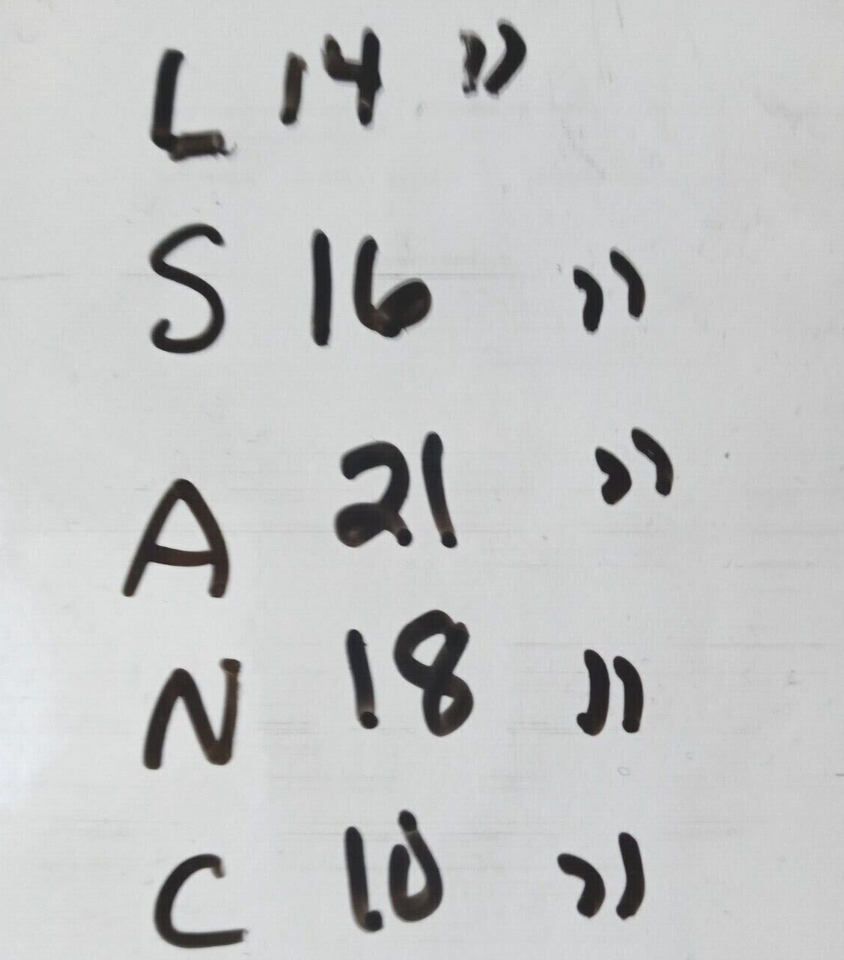 L 14 "
S 16 "
A 21 "
N 18 "
C 10 "